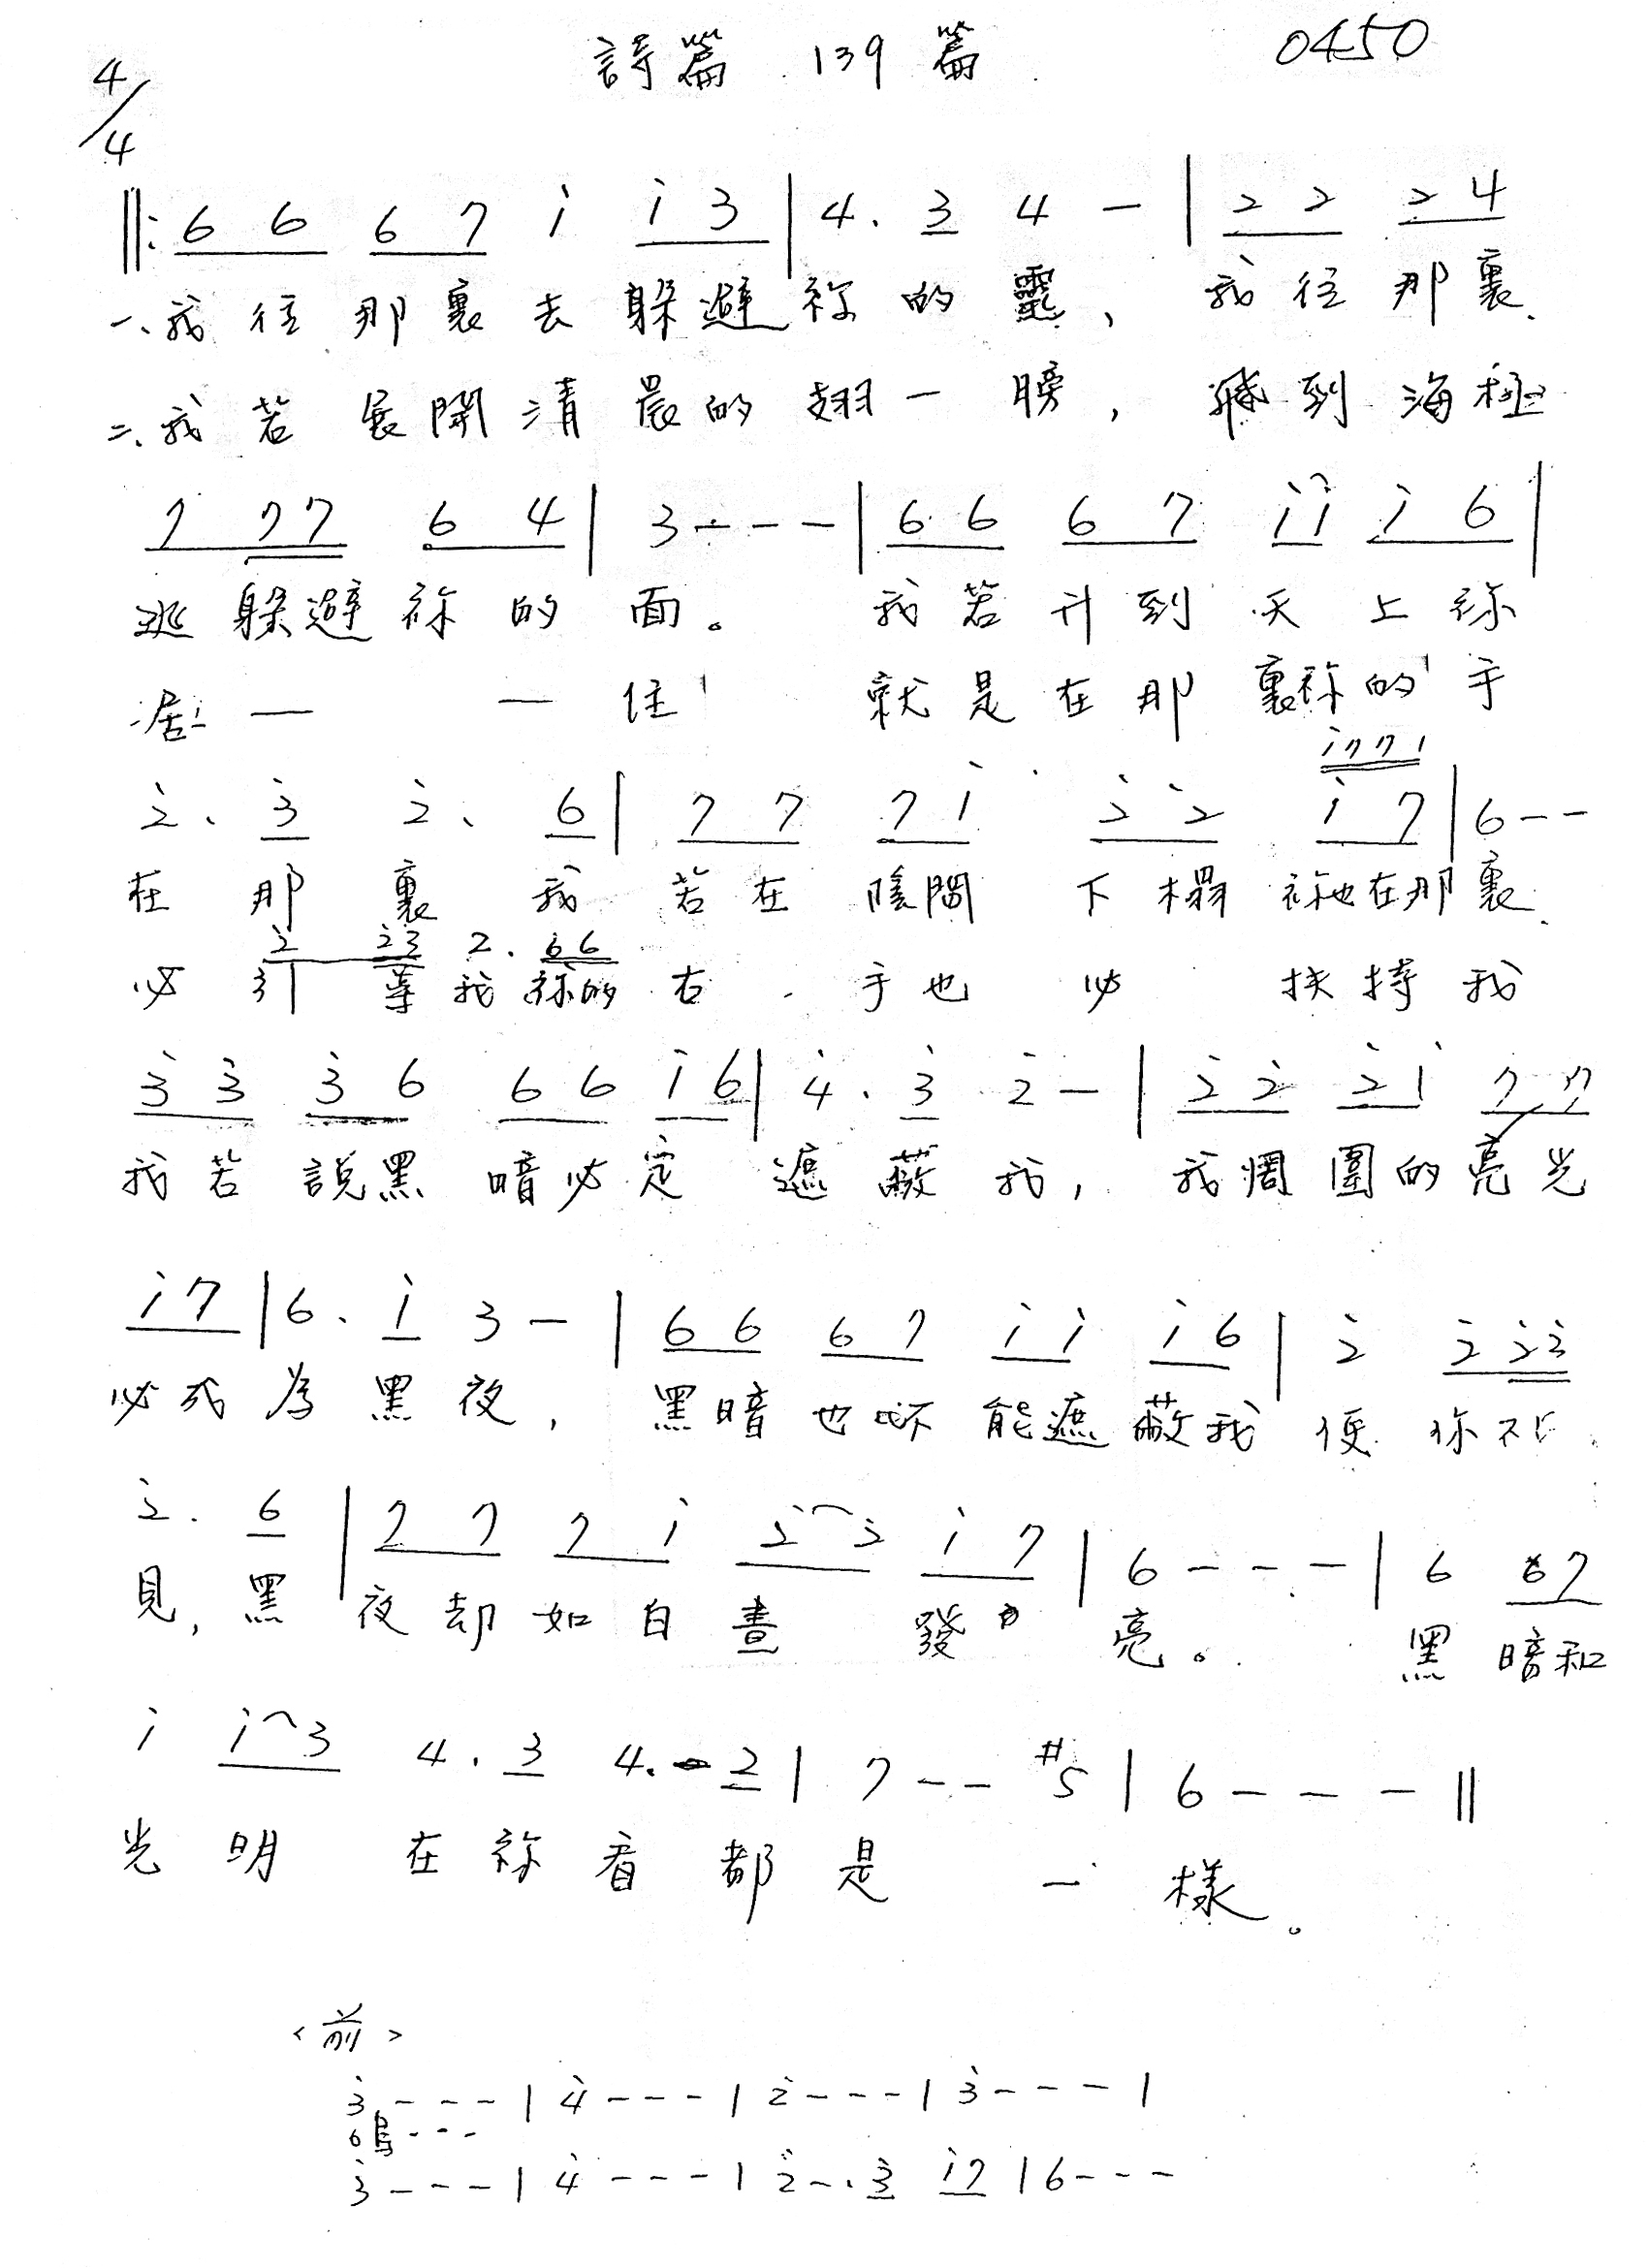 詩篇 139篇 0450
4/4
||: 6 6 6 7 i i 3 | 4 . 3 4 - | 2 2 2 4
一、我往那裏去躲避祢的靈、我往那裏
二、我若展開清晨的翅一膀，飛到海極
7 7 7 6 4 | 3 - - - | 6 6 6 7 i i i 6 |
逃躲避祢的面。我若升到天上祢
居一 一住 就是在那裏祢的手
i 7 7 1
2̇ . 3̇ 2̇ . 6 | 7 7 7 i 2̇ 2̇ i 7 | 6 - -
在那裏我若在陰間下榻祢也在那裏
2̇ 2̇ 3̇ 2 . 6 6
必引導我祢的右手也必扶持我
3̇ 3̇ 3̇ 6 6 6 i 6 | 4̇ . 3̇ 2̇ - | 2̇ 2̇ 2̇ i 7 7
我若說黑暗必定遮蔽我，我週圍的亮光
i 7 | 6 . i 3 - | 6 6 6 7 i i i 6 | 2̇ 2̇ 2̇ 3̇
必成為黑夜，黑暗也不能遮蔽我使你不
2̇ . 6 | 7 7 7 i 2̇ 2̇ i 7 | 6 - - - | 6 6 7
見，黑夜却如白晝發 亮。黑暗和
i i 3 4 . 3 4 . 2 | 7 - - #5 | 6 - - - ||
光明 在祢看都是一樣。
<前>
3̇ - - - | 4̇ - - - | 2̇ - - - | 3̇ - - - |
6 - - -
3̇ - - - | 4̇ - - - | 2̇ - . 3̇ i 7 | 6 - - -